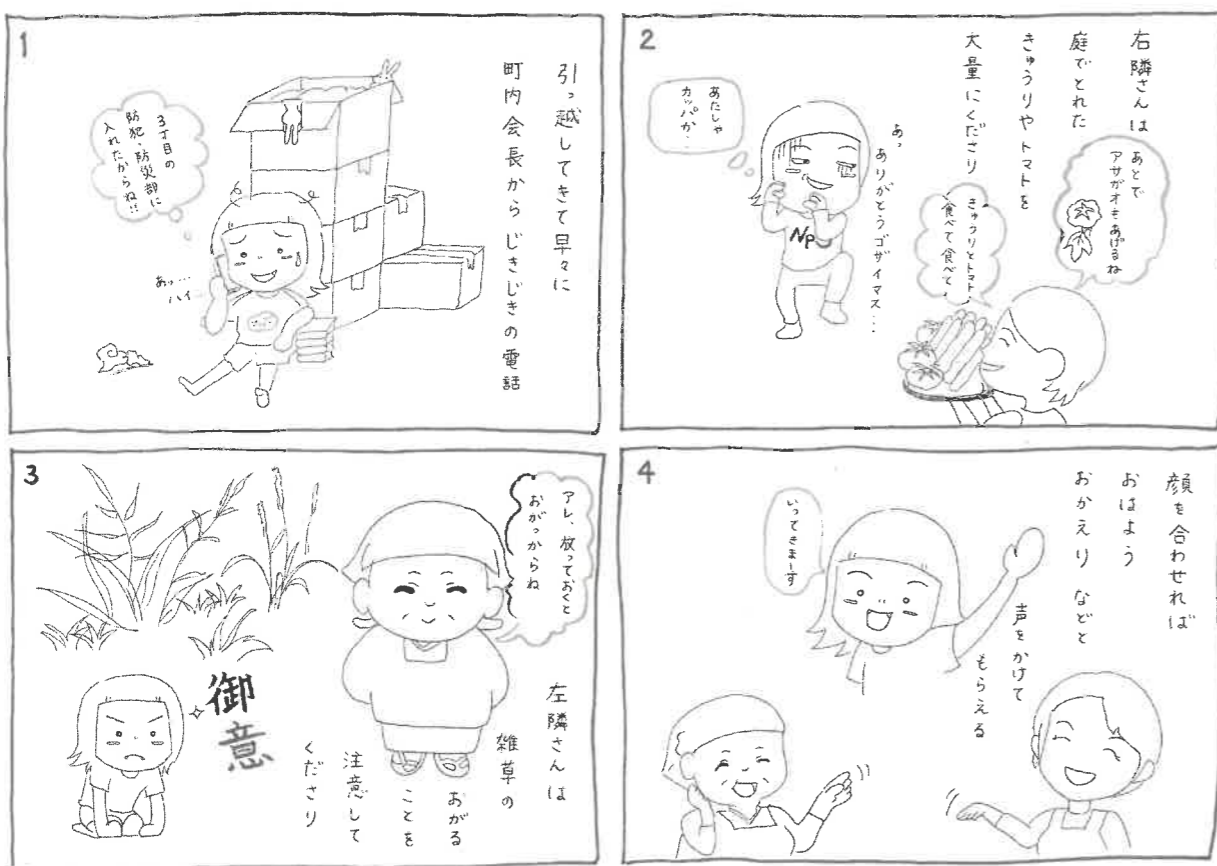 1
引っ越してきて早々に
町内会長から じきじきの電話
3丁目の
防犯・防災部に
入れたからね!!
あっ…
ハイ…
2
右隣さんは
庭でとれた
きゅうりやトマトを
大量にくださり
あとで
アサガオもあげるね
きゅうりとトマト
食べて食べて
あっ
ありがとうゴザイマス…
あたしゃ
カッパか…
3
アレ、放っておくと
おがっからね
左隣さんは
雑草の
おがる
ことを
注意して
くださり
御意
4
顔を合わせれば
おはよう
おかえり などと
声をかけて
もらえる
いってきまーす